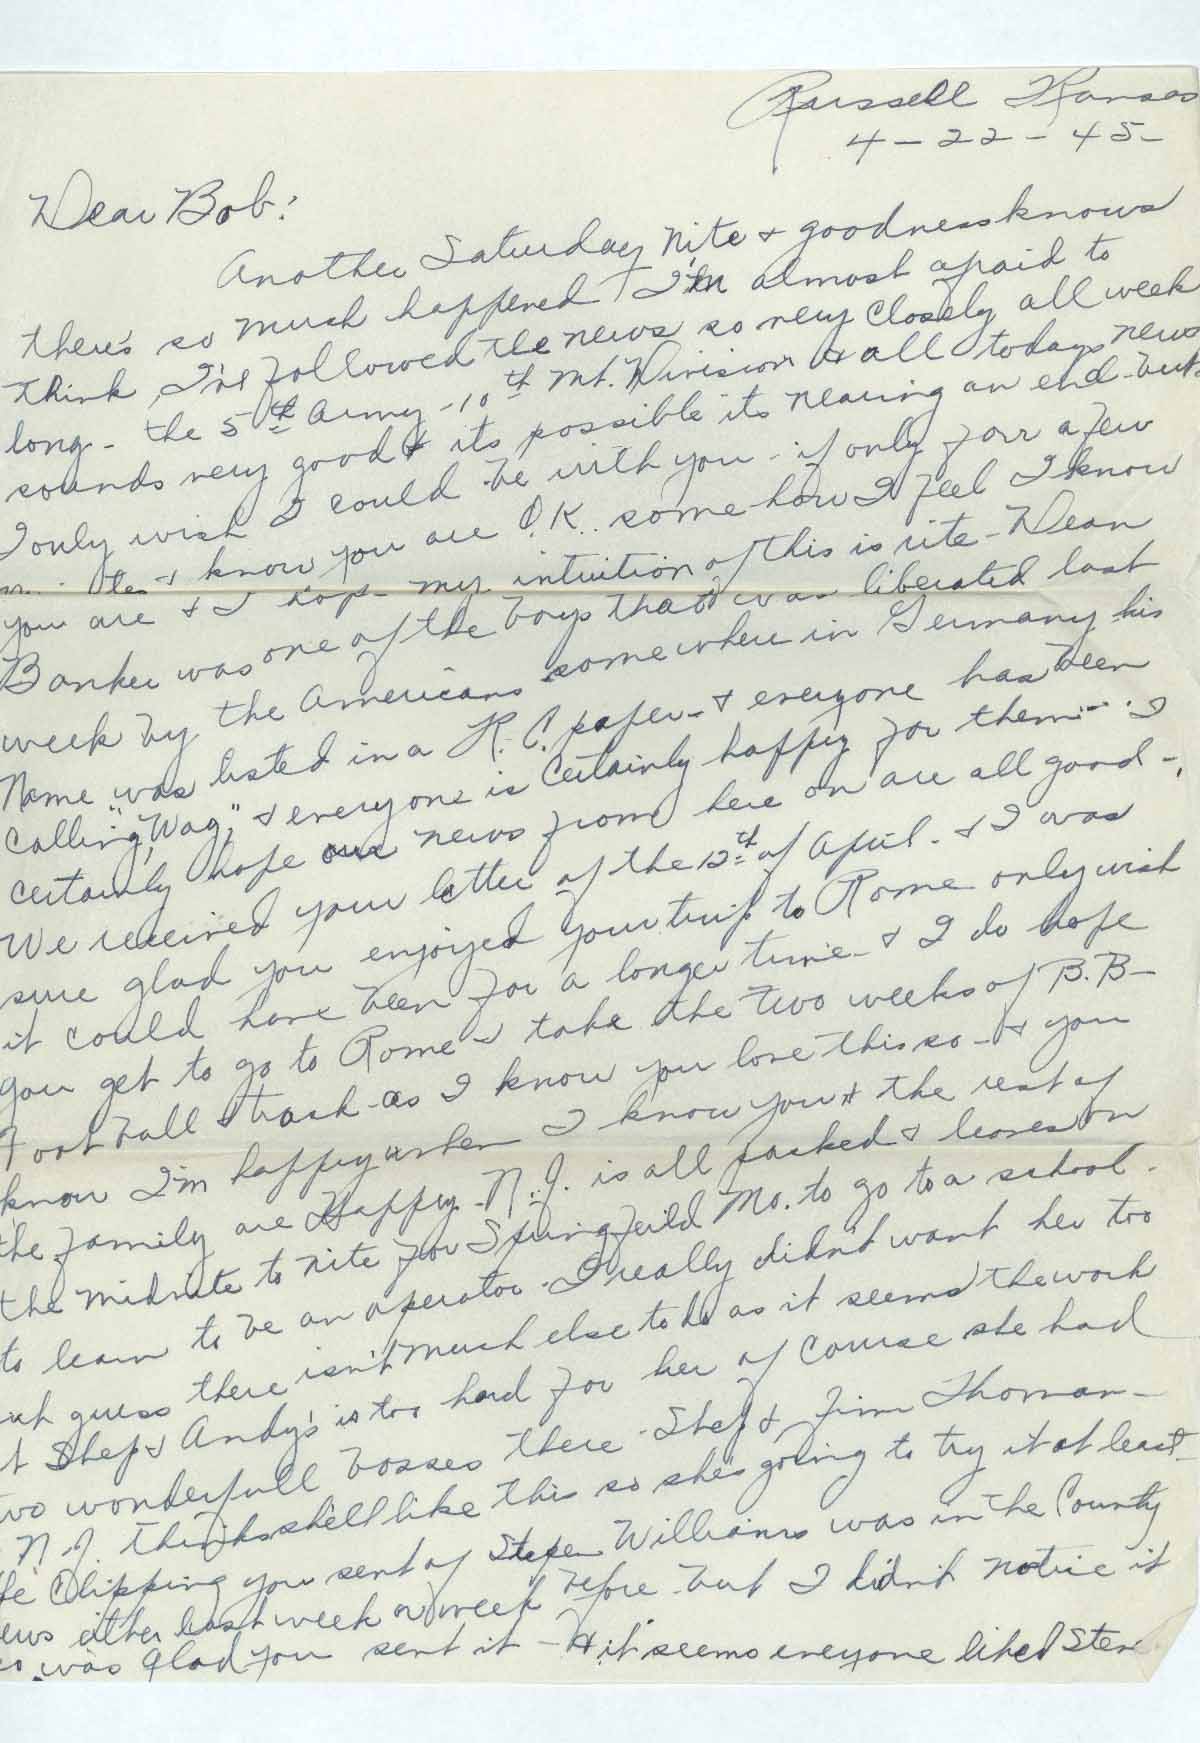 Russell Kansas
4-22-45-
Dear Bob:
Another Saturday Nite & goodness knows
there's so much happened I'm almost afraid to
think, I've followed the news so very closely all week
long - the 5th Army - 10th Mt. Division & all todays news
sounds very good & its possible its nearing an end - but
I only wish I could be with you - if only forr a few
& know you are O.K. some-how I feel I know
you are & I hope my intuition of this is rite - Dean
Banker was one of the boys that was liberated last
week by the Americans somewhere in Germany his
Name was listed in a K.C. paper - & everyone has been
calling "Wag," & everyone is certainly happy for them - I
certainly hope our news from here on are all good -
We received your letter of the 12th of April - & I was
sure glad you enjoyed your trip to Rome only wish
it could have been for a longer time - & I do hope
you get to go to Rome & take the two weeks of B.B-
Foot ball & track - as I know you love this so - & you
know I'm happy when I know you & the rest of
the family are Happy - N.J. is all packed & leaves on
the midnite to nite for Springfeild Mo. to go to a school -
to learn to be an operator - I really didn't want her too
but guess there isn't much else to do as it seems the work
at Shep & Andy's is too hard for her of course she had
two wonderfull bosses there - Shep & Jim Thoman -
N.J. thinks she'll like this so she's going to try it at least -
The Clipping you sent of Williams was in the County
News either last week or week before but I didn't notice it
so was glad you sent it - & it seems everyone liked Steve